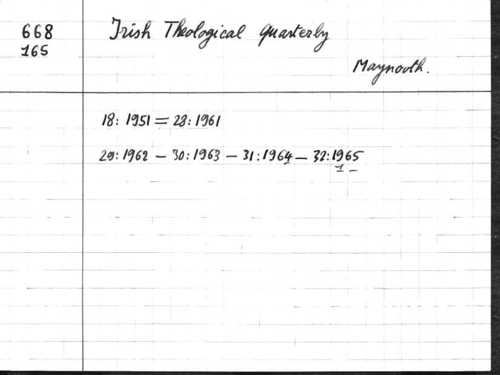 668 Irish Theological Quarterly
165
Maynooth.
18: 1951 = 28: 1961
29: 1962 - 30: 1963 - 31: 1964 - 32: 1965
1 -